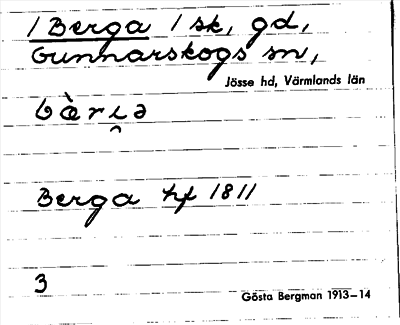 1 Berga 1 sk, gd,
Gunnarskogs sn,
Jösse hd, Värmlands län
bæ̀ri̯ə
Berga hf 1811
3
Gösta Bergman 1913–14